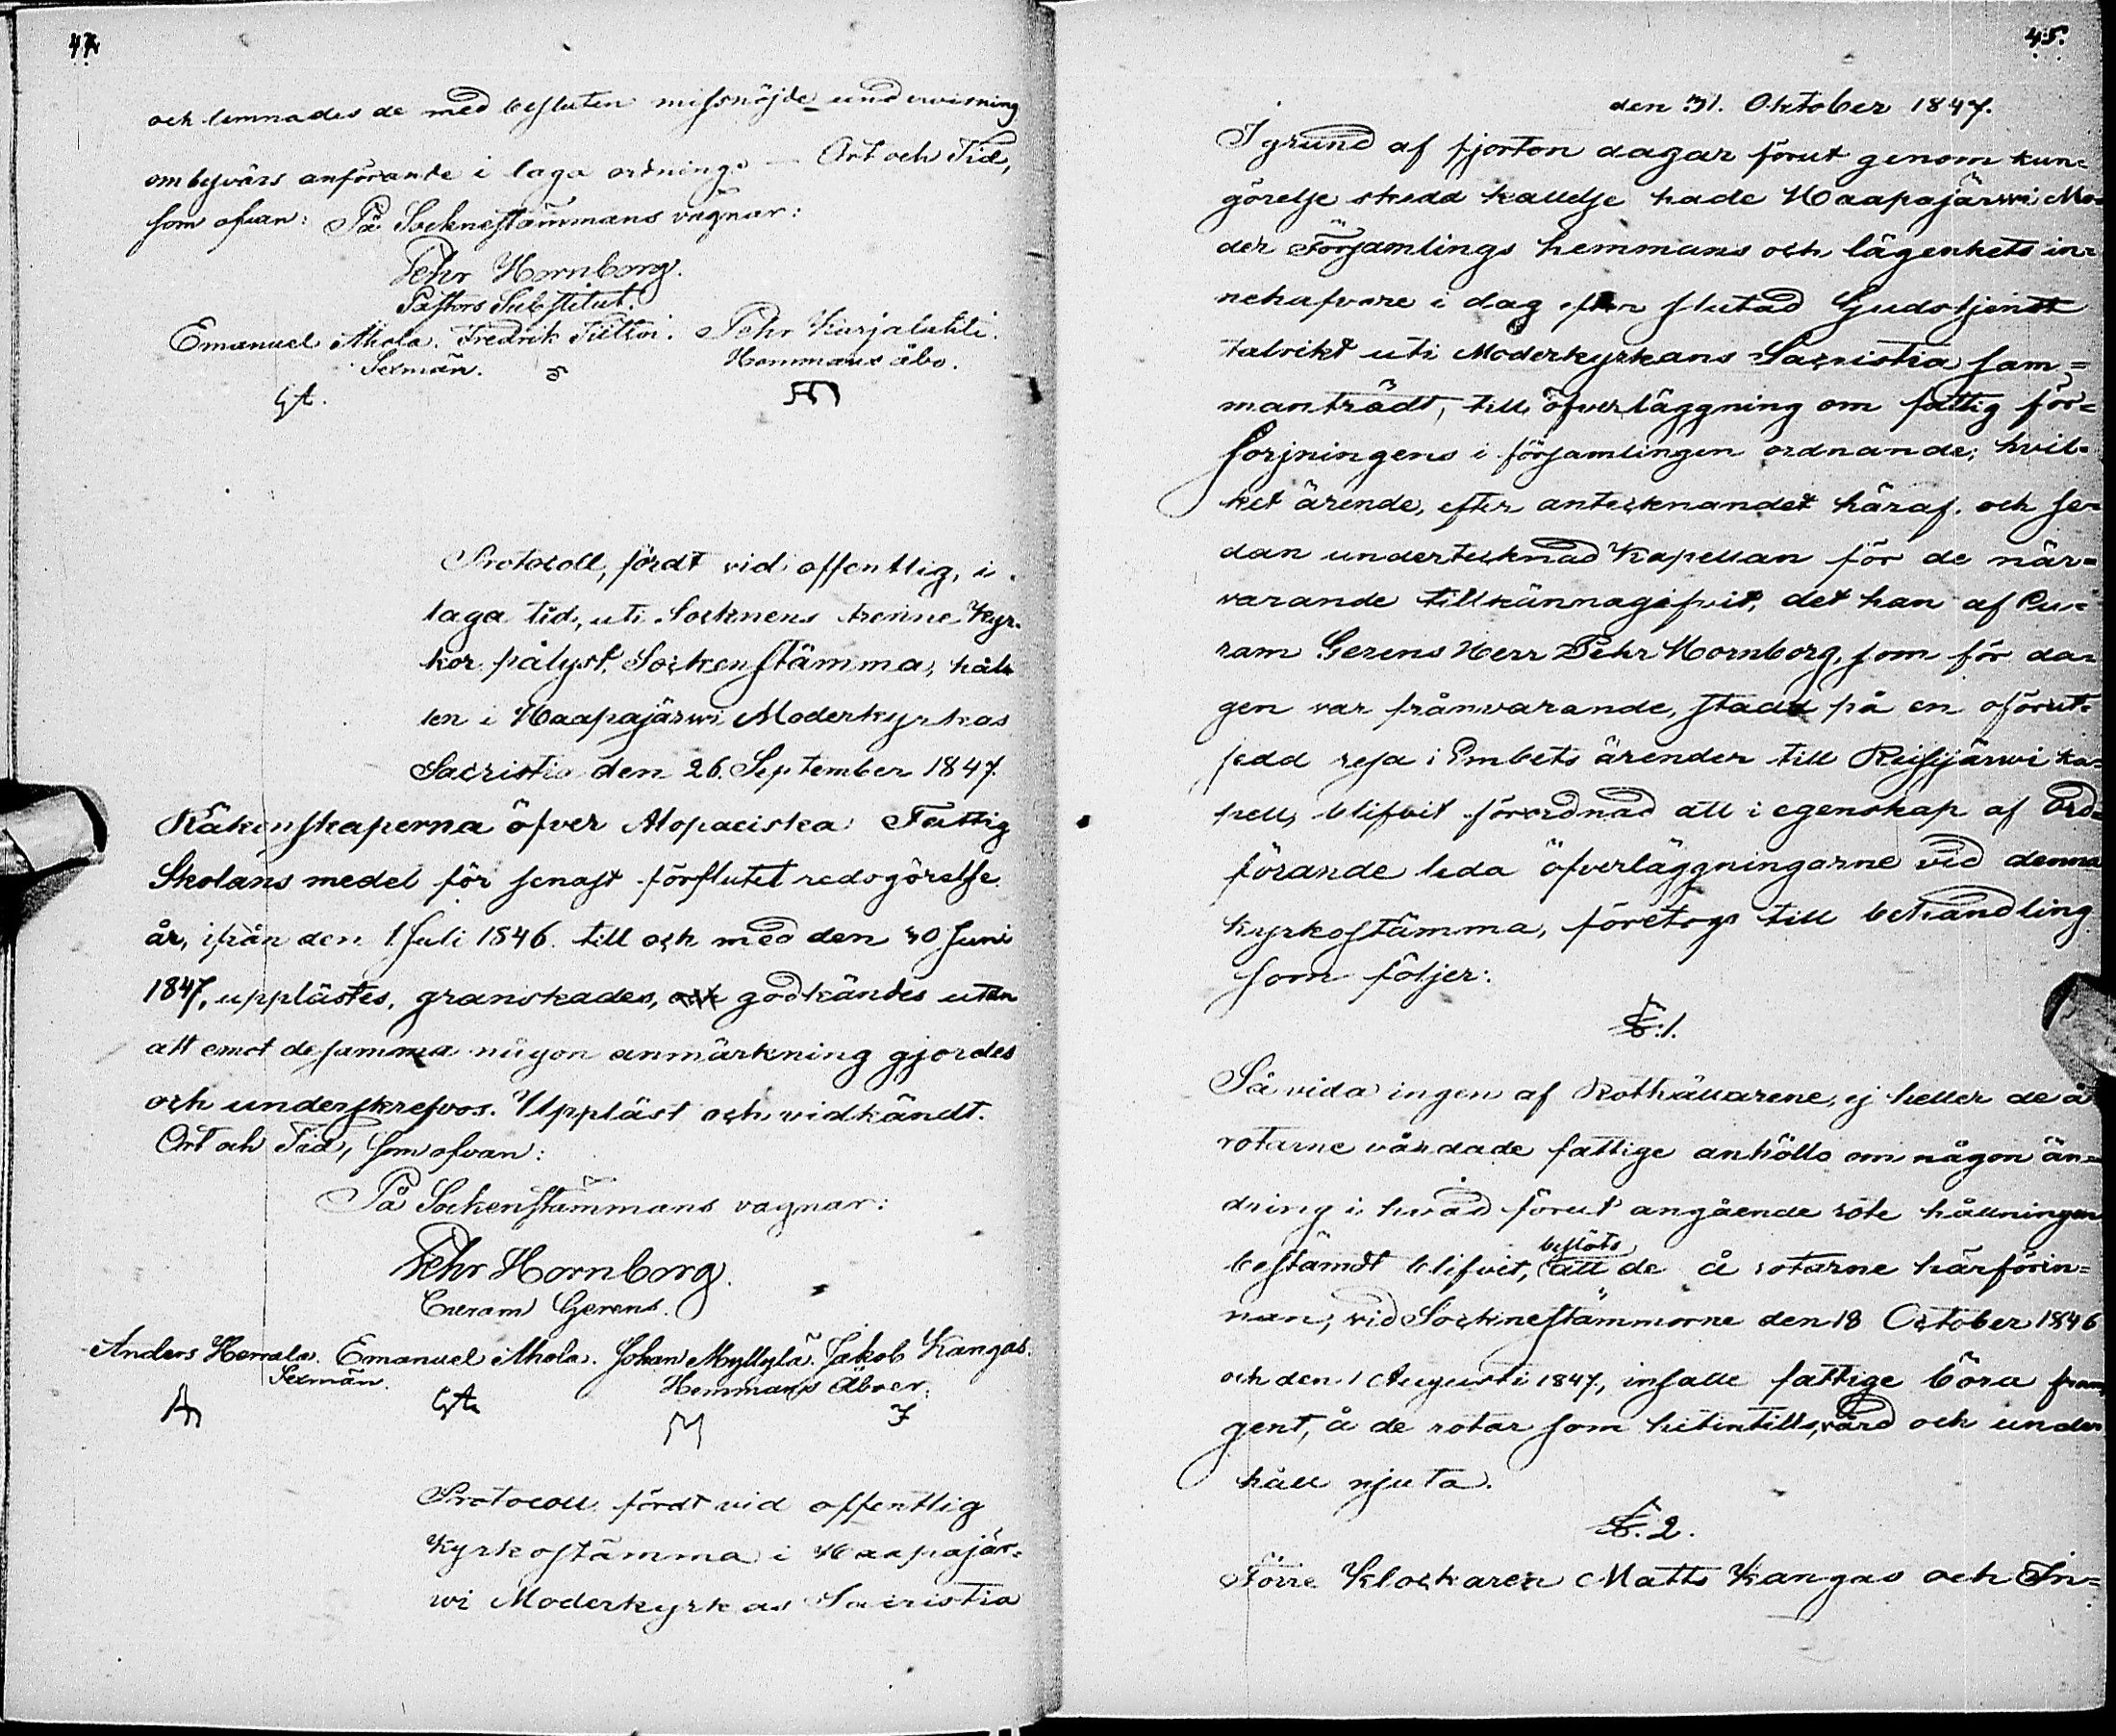 44.
och lemnades de med besluten missnöjde undervisning
om besvärs anförande i laga ordning. — Ort och Tid,
som ofvan: På Socknestämmans vägnar:
Pehr Hornborg.
Pastors Substitut.
Emanuel Ahola. Fredrik Tiitto. Pehr Karjalahti.
Sexmän. Hemmans åbo.
Protocoll, fördt vid offentlig, i
laga tid, uti Socknens trenne Kyr-
kor pålyst, Sockenstämma, hål-
len i Haapajärwi Moderkyrkas
Sacristia den 26. September 1847.
Räkenskaperna öfver Alopaeiska Fattig
Skolans medel för senast förflutet redogörelse
år, ifrån den 1 Juli 1846. till och med den 30 Juni
1847, upplästes, granskades, och godkändes utan
att emot desamma någon anmärkning gjordes
och underskrefvos. Uppläst och vidkändt.
Ort och Tid, som ofvan:
På Sockenstämmans vägnar:
Pehr Hornborg.
Curam Gerens.
Anders Herrala. Emanuel Ahola. Johan Myllylä. Jakob Kangas.
Sexmän. Hemmans Åboer.
Protocoll fördt vid offentlig
Kyrkostämma i Haapajär-
wi Moderkyrkas Sacristia
45.
den 31. Oktober 1847.
I grund af fjorton dagar förut genom kun-
görelse skedd kallelse hade Haapajärwi Mo-
der Församlings hemmans och lägenhets in-
nehafvare i dag efter slutad Gudstjenst
talrikt uti Moderkyrkans Sacristia sam-
manträdt, till öfverläggning om fattig för-
sorjningens i församlingen ordnande; hvil-
ket ärende, efter antecknandet häraf, och se-
dan undertecknad Kapellan för de när-
varande tillkännagifvit, det han af Cu-
ram Gerens Herr Pehr Hornborg, som för da-
gen var frånvarande, stadd på en oförut-
sedd resa i Embets ärender till Reisjärwi ka-
pell, blifvit förordnad att i egenskap af Ord-
förande leda öfverläggningarne vid denna
kyrkostämma, företogs till behandling
som följer:
§. 1.
Så vida ingen af Rothållarene, ej heller de å
rotarne vårdade fattige anhölls om någon än-
dring i hvad förut angående rote hållningen
beslöts
bestämdt blifvit, att de å rotarne härförin-
nan, vid Socknestämmorne den 18 October 1846
och den 1 Augusti 1847, införde fattige böra fram-
gent, å de rotar som hitintills, vård och under
håll njuta.
§. 2.
Förre Klockaren Matts Kangas och In-